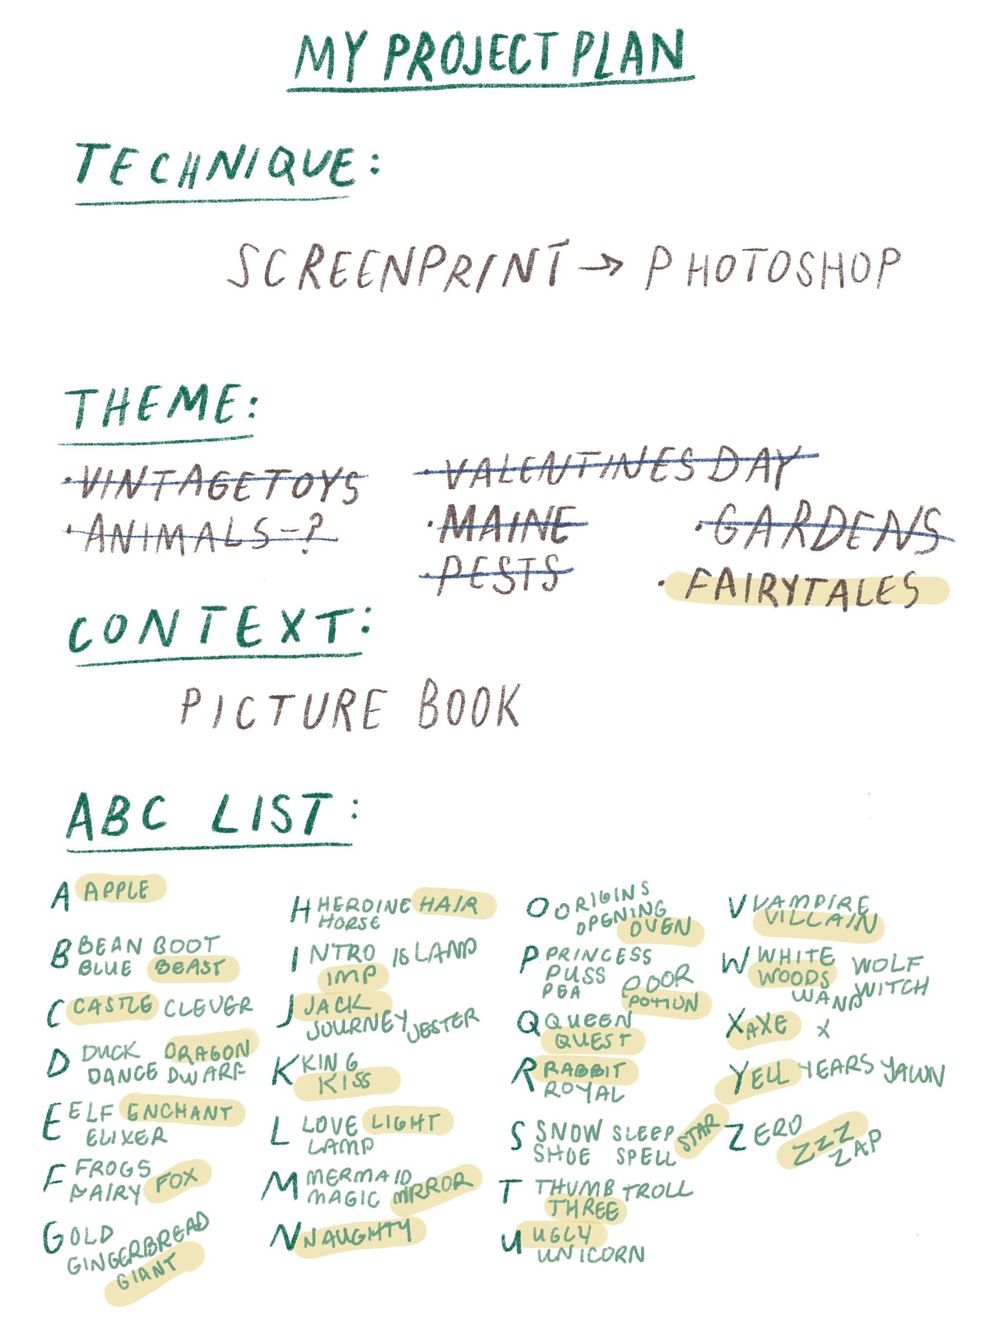 MY PROJECT PLAN
TECHNIQUE:
SCREENPRINT → PHOTOSHOP
THEME:
·VINTAGE TOYS
·ANIMALS-?
·VALENTINES DAY
·MAINE
·PESTS
·GARDENS
·FAIRYTALES
CONTEXT:
PICTURE BOOK
ABC LIST:
A APPLE
B BEAN BOOT
BLUE BEAST
C CASTLE CLEVER
D DUCK DRAGON
DANCE DWARF
E ELF ENCHANT
ELIXER
F FROGS
FAIRY FOX
GOLD
GINGERBREAD
GIANT
H HEROINE HAIR
HORSE
INTRO ISLAND
IMP
J JACK
JOURNEY JESTER
K KING
KISS
L LOVE LIGHT
LAMP
M MERMAID
MAGIC MIRROR
N NAUGHTY
O ORIGINS
OPENING
OVEN
P PRINCESS
PUSS POOR
PEA POTION
Q QUEEN
QUEST
R RABBIT
ROYAL
S SNOW SLEEP STAR
SHOE SPELL
T THUMB TROLL
THREE
U UGLY
UNICORN
V VAMPIRE
VILLAIN
W WHITE WOLF
WOODS WITCH
WAND
X AXE X
YELL YEARS YAWN
ZERO
ZZZ
ZAP